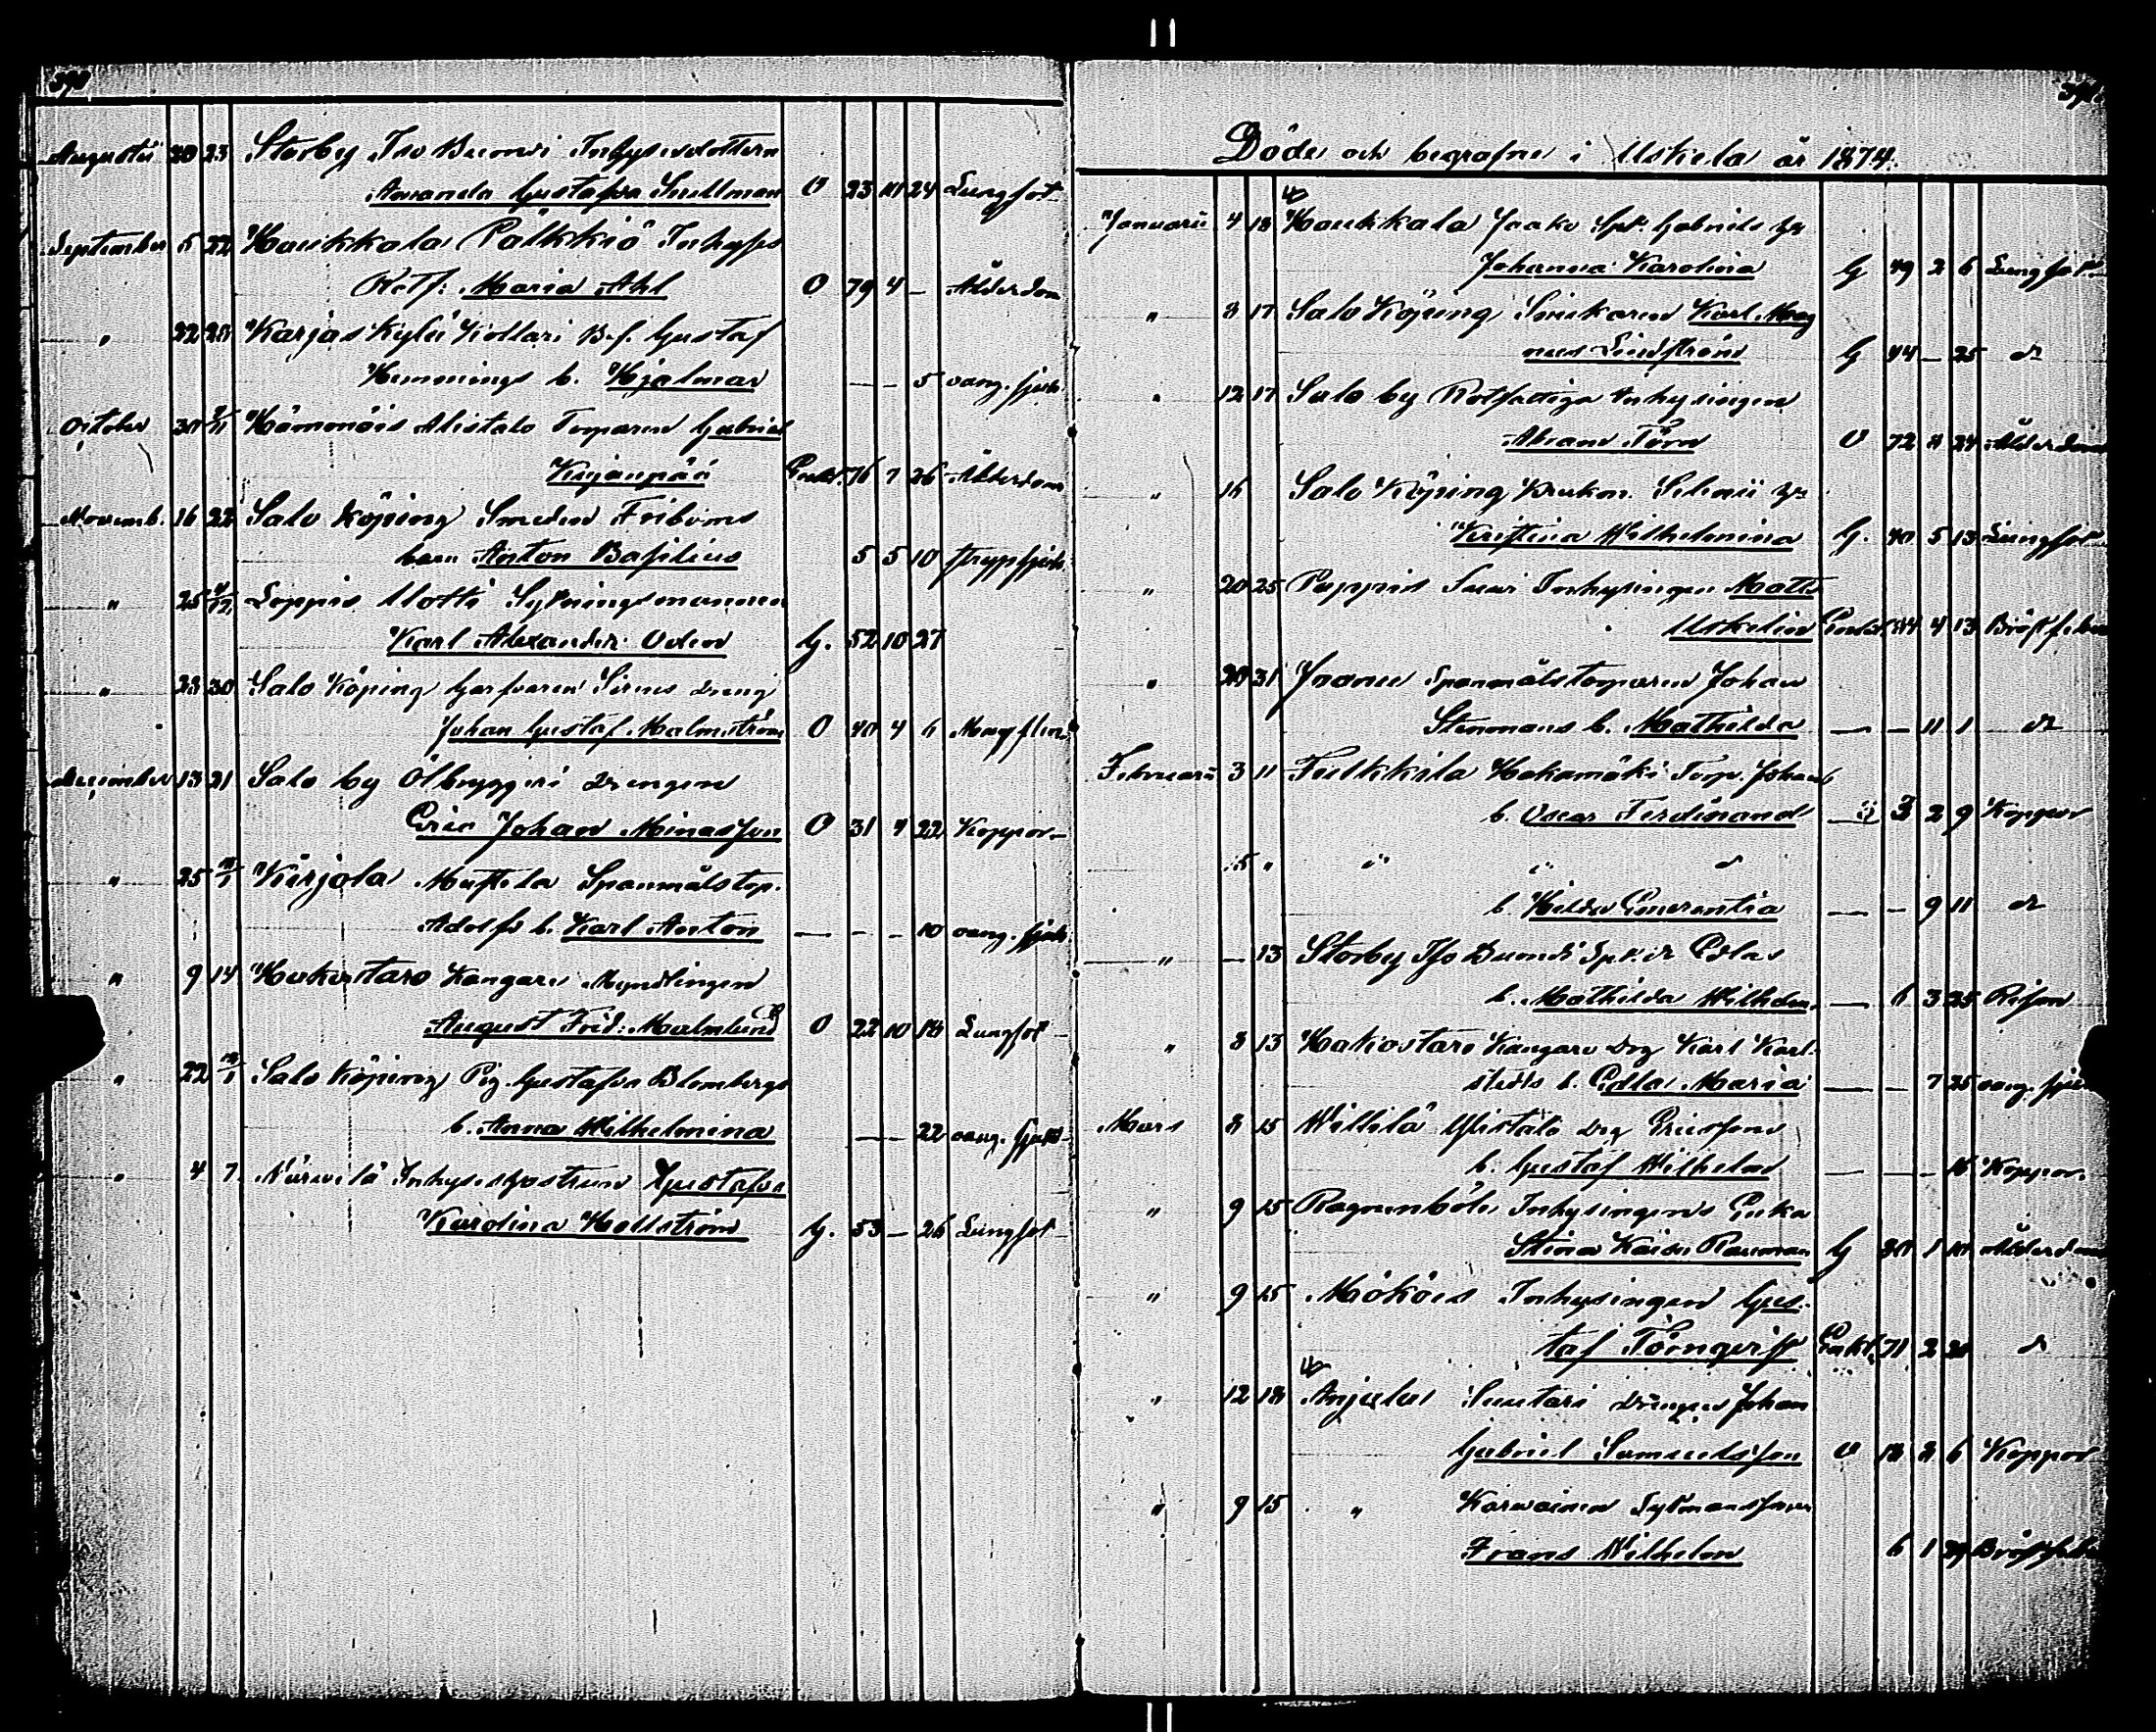 Augusti 20 23 Storby Iso Buondi Inhysesdottern
Amanda Gustafva Snellman O 23 11 24 Lungsot
September 5 22 Haukkala Pälkkiö Inhyses
Rotf: Maria Ahl O 79 4 – Ålderdom
" 22 28 Karjaskylä Kollari B.f. Gustaf
Hemmings b. Hjalmar — – 5 oang. sjuk.
October 30 2/11 Hämmöis Alistalo Torparen Gabriel
Kujanpää Enkl. 76 7 26 Ålderdom
Novemb. 16 22 Salo Köping Smeden Friboms
barn Anton Basilius 5 5 10 strypsjuk.
" 25 4/12 Loppis Uotti Sytningsmannen
Karl Alexander Oden G. 52 10 27
" 23 30 Salo Köping Garfvaren Sirens dreng
Johan Gustaf Malmström O 40 4 6
December 13 21 Salo by Ölbryggeri drengen
Eric Johan Minasson O 31 4 22 Koppor
" 25 Kärjola Mattila Spanmålstop.
Adolfs b. Karl Anton — – – 10 oang. sjuk.
" 9 14 Hakostaro Kangare Myndlingen
August Fred: Malmlund O 22 10 18 Lungsot
" 22 Salo Köping Pig. Gustafva Blombergs
b. Anna Wilhelmina — – 22 oang. sjukd
" 4 7 Inhyseshustrun Gustafva
Karolina Hellström G. 53 – 26 Lungsot
Döde och begrafne i Uskela år 1874.
Januarii 4 18 Haukkala Jaako Spt. Gabriels h:u
Johanna Karolina G 49 2 6 Lungsot
" 8 17 Salo Köping Snickaren Karl Mag
nus Lindström G 44 – 25 d:o
" 12 17 Salo by Rotfattiga Inhysingen
Abram Törn O 72 11 24 Ålderdom
" 16 Salo Köping Krukm. h:u
Kristina Wilhelmina G. 40 5 13 Lungsot
" 20 25 Pappis Suvi Inhysingen Matts
Uskelin Enkl. 44 4 13 Bröstfeber
" 28 31 Spanmålstorparen Johan
Stenmans b. Mathilda — – 11 1 d:o
Februarii 3 11 Tulkkila Hakamäki Torp. Johans
b. Oscar Ferdinand — 3 2 9 Koppor
5 " " " d:o
b. Hilda Emerentia — – 9 11 d:o
" — 13 Storby Iso Buondi Edlas
b. Mathilda Wilhelm. — 6 3 25 Risen
" 8 13 Hakostaro Kangare Drg Karl Karl-
stedts b. Edla Maria — – 7 25 oang. sjuk
Mars 8 15 Willilä Ylistalo Drg Ericssons
b. Gustaf Wilhelm — – – 16 Koppor
" 9 15 Ragnumböle Inhysingens Enka
Stina Kaisa Rauman G 80 1 10 Ålderdom
" 9 15 Mököis Inhysingen Gus-
taf Törnqvist Enkl. 71 2 20 d:o
" 12 18 Anjala Suutari Drengen Johan
Gabriel Samuelsson O 18 2 6 Koppor
" 9 15 " Karvainen Sytmanssonen
Frans Wilhelm 6 1 29 Bröstfeber